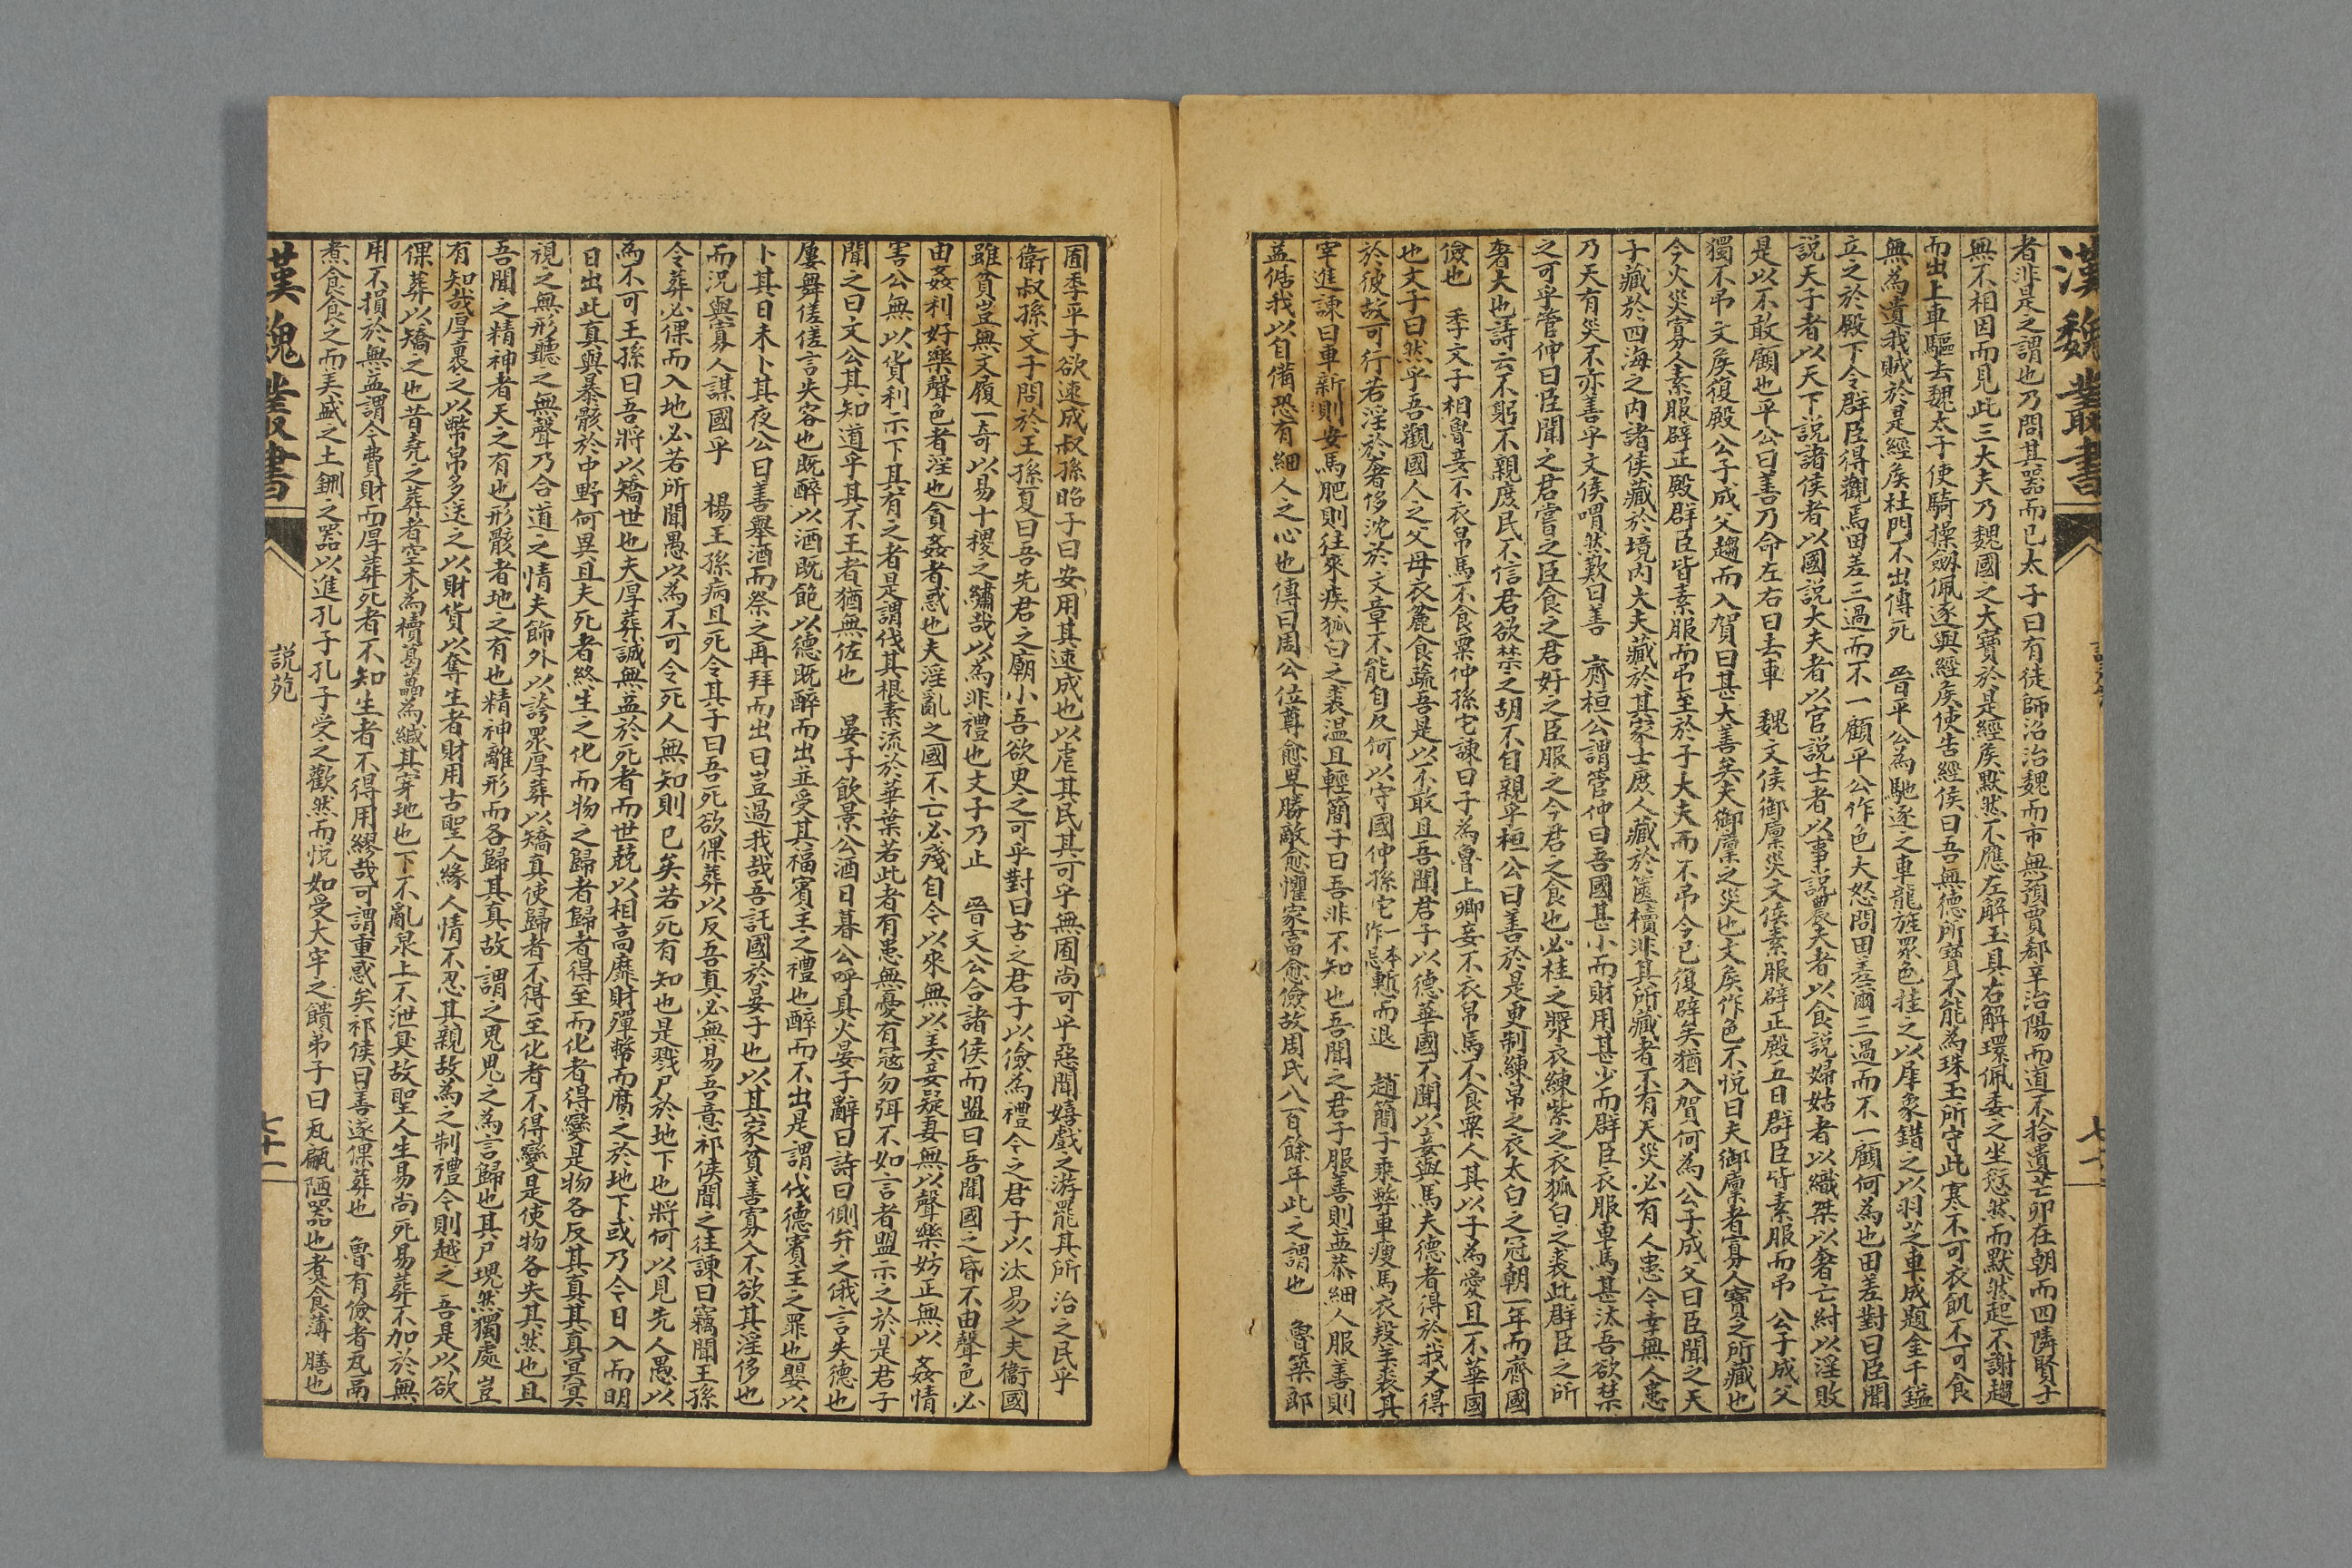 漢魏叢書
者非是之謂也乃問其器而已太子曰有徒師沼治魏而市無預賈郄辛治陽而道不拾遺芒卯在朝而四隣賢子
無不相因而見此三大夫乃魏國之大寶於是經矦默然不應左解玉具右解環佩委之坐愆然而默然起不謝趨
而出上車驅去魏太子使騎操劔佩逐與經矦使告經侯曰吾無德所寶不能為珠玉所守此寒不可衣飢不可食
無為遺我賊於是經矦杜門不出傳死　晉平公為馳逐之車龍旌眾色挂之以犀象錯之以羽芝車成題金千鎰
立之於殿下令群臣得觀焉田差三過而不一顧平公作色大怒問田差爾三過而不一顧何為也田差對曰臣聞
說天子者以天下說諸侯者以國說大夫者以官說士者以事說農夫者以食說婦姑者以織桀以奢亡紂以淫敗
是以不敢顧也平公曰善乃命左右曰去車　魏文侯御廩災文侯素服辟正殿五日群臣皆素服而弔　公子成父
獨不弔文矦復殿公子成父趨而入賀曰甚大善矣夫御廩之災也文矦作色不悅曰夫御廩者寡人寶之所藏也
今火災寡人素服辟正殿群臣皆素服而弔至於子大夫而不弔今已復辟矣猶入賀何為公子成父曰臣聞之天
子藏於四海之內諸侯藏於境內大夫藏於其家士庶人藏於篋櫝非其所藏者不有天災必有人患今幸無人患
乃天有災不亦善乎文侯喟然歎曰善　齊桓公謂管仲曰吾國甚小而財用甚少而群臣衣服車馬甚汰吾欲禁
之可乎管仲曰臣聞之君嘗之臣食之君好之臣服之今君之食也必桂之漿衣練紫之衣狐白之裘此群臣之所
奢大也詩云不躬不親庶民不信君欲禁之胡不自親乎桓公曰善於是更制練帛之衣太白之冠朝一年而齊國
儉也　季文子相魯妾不衣帛馬不食粟仲孫它諫曰子為魯上卿妾不衣帛馬不食粟人其以子為愛且不華國
也文子曰然乎吾觀國人之父母衣麤食蔬吾是以不敢且吾聞君子以德華國不聞以妾與馬夫德者得於我又得
於彼故可行若淫於奢侈沈於文章不能自反何以守國仲孫它一本作忌慙而退　趙簡子乘弊車瘦馬衣羖羊裘其
宰進諫曰車新則安馬肥則往來疾狐白之裘溫且輕簡子曰吾非不知也吾聞之君子服善則益恭細人服善則
益倨我以自備恐有細人之心也傳曰周公位尊愈卑勝敵愈懼家富愈儉故周氏八百餘年此之謂也　魯築郎
囿季平子欲速成叔孫昭子曰安用其速成也以虐其民其可乎無囿尚可乎惡聞嬉戲之游罷其所治之民乎
衛叔孫文子問於王孫夏曰吾先君之廟小吾欲更之可乎對曰古之君子以儉為禮今之君子以汰易之夫衞國
雖貧豈無文履一奇以易十稷之繡哉以為非禮也文子乃止　晉文公合諸侯而盟曰吾聞國之昏不由聲色必
由姦利好樂聲色者淫也貪姦者惑也夫淫亂之國不亡必殘自今以來無以美妾疑妻無以聲樂妨正無以姦情
害公無以貨利示下其有之者是謂伐其根素流於華葉若此者有患無憂有寇勿弭不如言者盟示之於是君子
聞之曰文公其知道乎其不王者猶無佐也　晏子飲景公酒日暮公呼具火晏子辭曰詩曰側弁之俄言失德也
屢舞傞傞言失容也既醉以酒既飽以德既醉而出並受其福賓主之禮也醉而不出是謂伐德賓主之罪也嬰以
卜其日未卜其夜公曰善舉酒而祭之再拜而出曰豈過我哉吾託國於晏子也以其家貧善寡人不欲其淫侈也
而況與寡人謀國乎　楊王孫病且死令其子曰吾死欲倮葬以反吾真必無易吾意祁侯聞之往諫曰竊聞王孫
令葬必倮而入地必若所聞愚以為不可令死人無知則已矣若死有知也是戮尸於地下也將何以見先人愚以
為不可王孫曰吾將以矯世也夫厚葬誠無益於死者而世競以相高靡財殫幣而腐之於地下或乃今日入而明
日出此真與暴骸於中野何異且夫死者終生之化而物之歸者歸者得至而化者得變是物各反其真其真冥冥
視之無形聽之無聲乃合道之情夫飾外以誇眾厚葬以矯真使歸者不得至化者不得變是使物各失其然也且
吾聞之精神者天之有也形骸者地之有也精神離形而各歸其真故謂之鬼鬼之為言歸也其尸塊然獨處豈
有知哉厚裹之以幣帛多送之以財貨以奪生者財用古聖人緣人情不忍其親故為之制禮今則越之吾是以欲
倮葬以矯之也昔堯之葬者空木為櫝葛藟為緘其穿地也下不亂泉上不泄臭故聖人生易尚死易葬不加於無
用不損於無益謂今費財而厚葬死者不知生者不得用繆哉可謂重惑矣祁侯曰善遂倮葬也　魯有儉者瓦鬲
煮食食之而美盛之土鉶之器以進孔子孔子受之歡然而悅如受大牢之饋弟子曰瓦甂陋器也煮食薄膳也
漢魏叢書
說苑
七十二